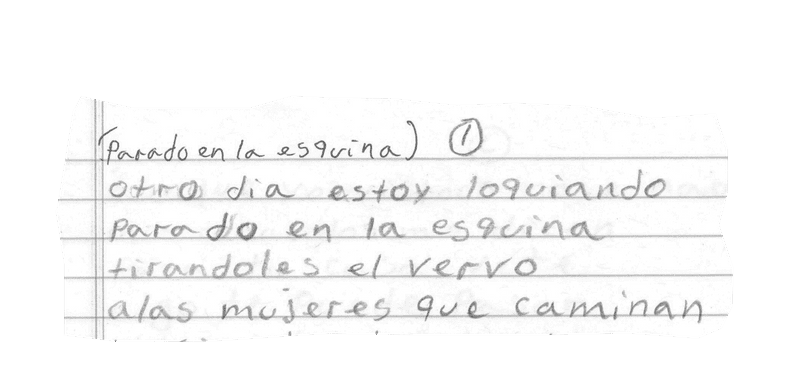 (Parado en la esquina) ①
otro dia estoy loquiando
parado en la esquina
tirandoles el vervo
alas mujeres que caminan